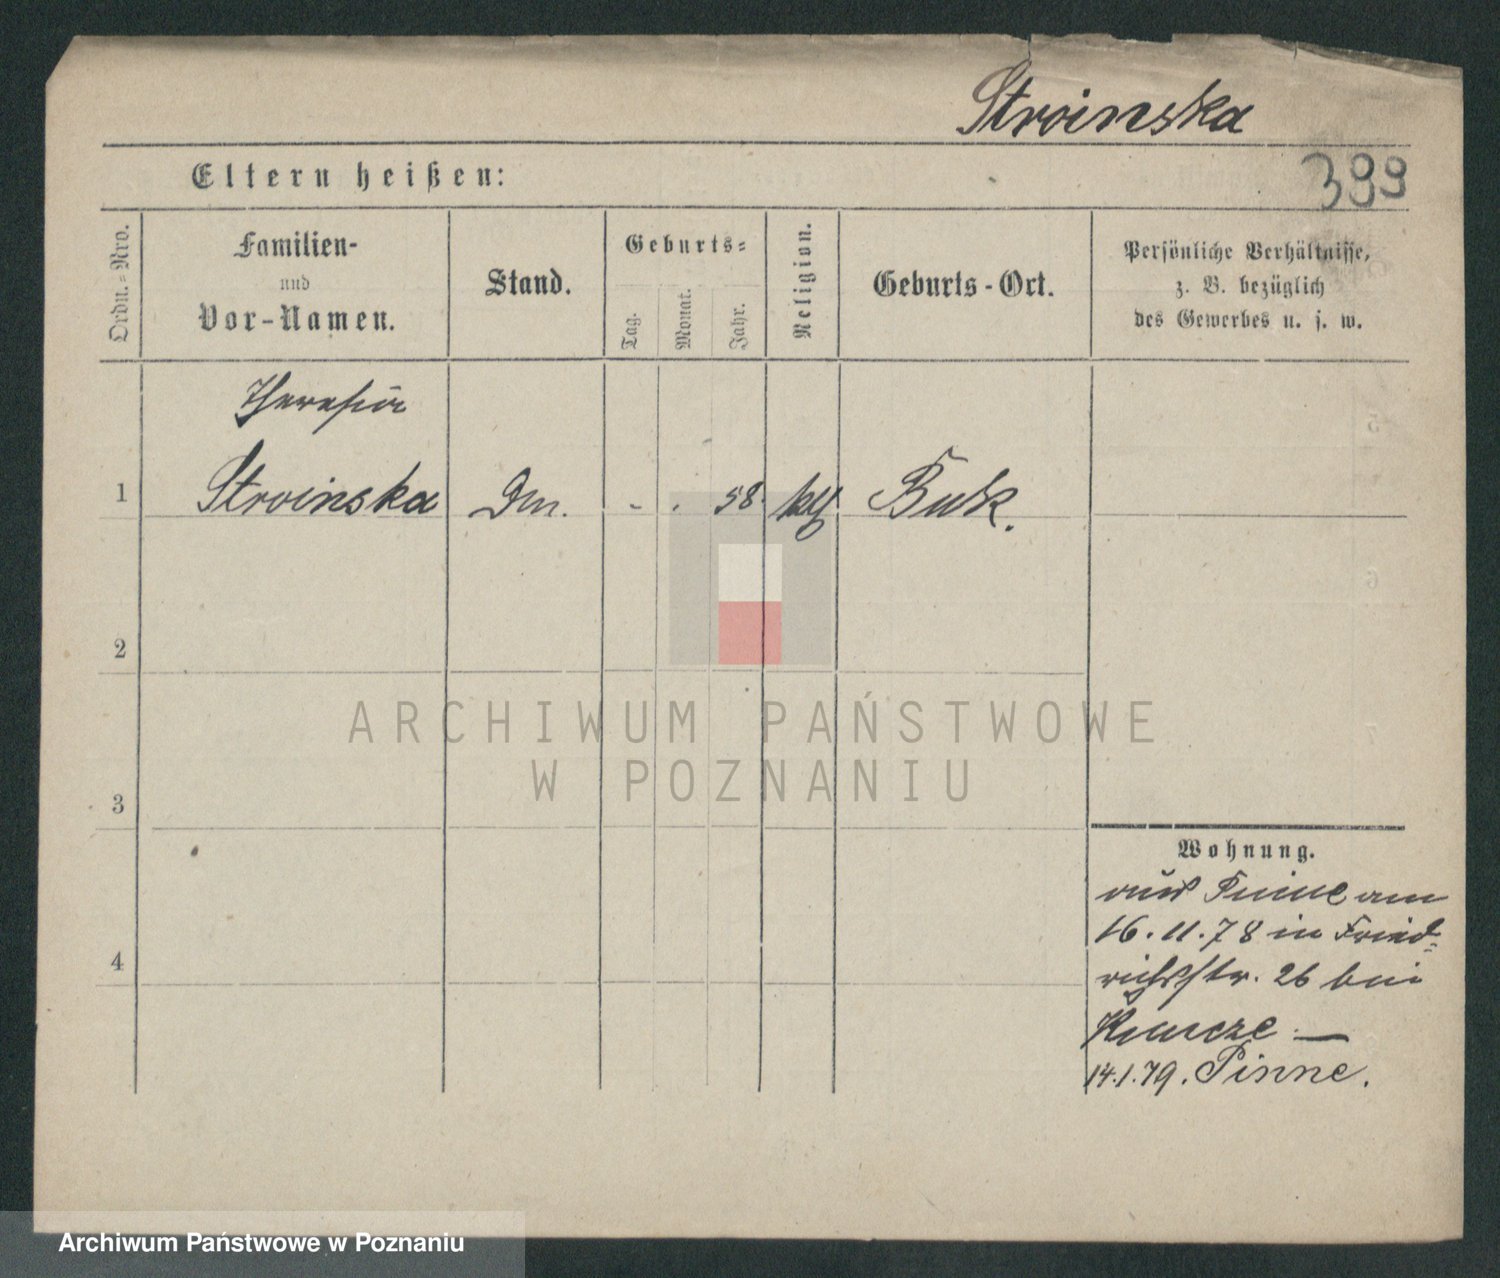 Stroinska
399
Eltern heißen:
Ordn.=Nro.
Familien-
und
Vor-Namen.
Stand.
Geburts=
Tag.
Monat.
Jahr.
Religion.
Geburts-Ort.
Persönliche Verhältnisse,
z. B. bezüglich
des Gewerbes u. s. w.
Theresia
1 Stroinska Dm. - . 58. kth Buk.
2
3
4
ARCHIWUM PAŃSTWOWE
W POZNANIU
Wohnung.
aus Pinne am
16.11.78 in Fried=
richsstr. 26 bei
14.1.79. Pinne.
Archiwum Państwowe w Poznaniu